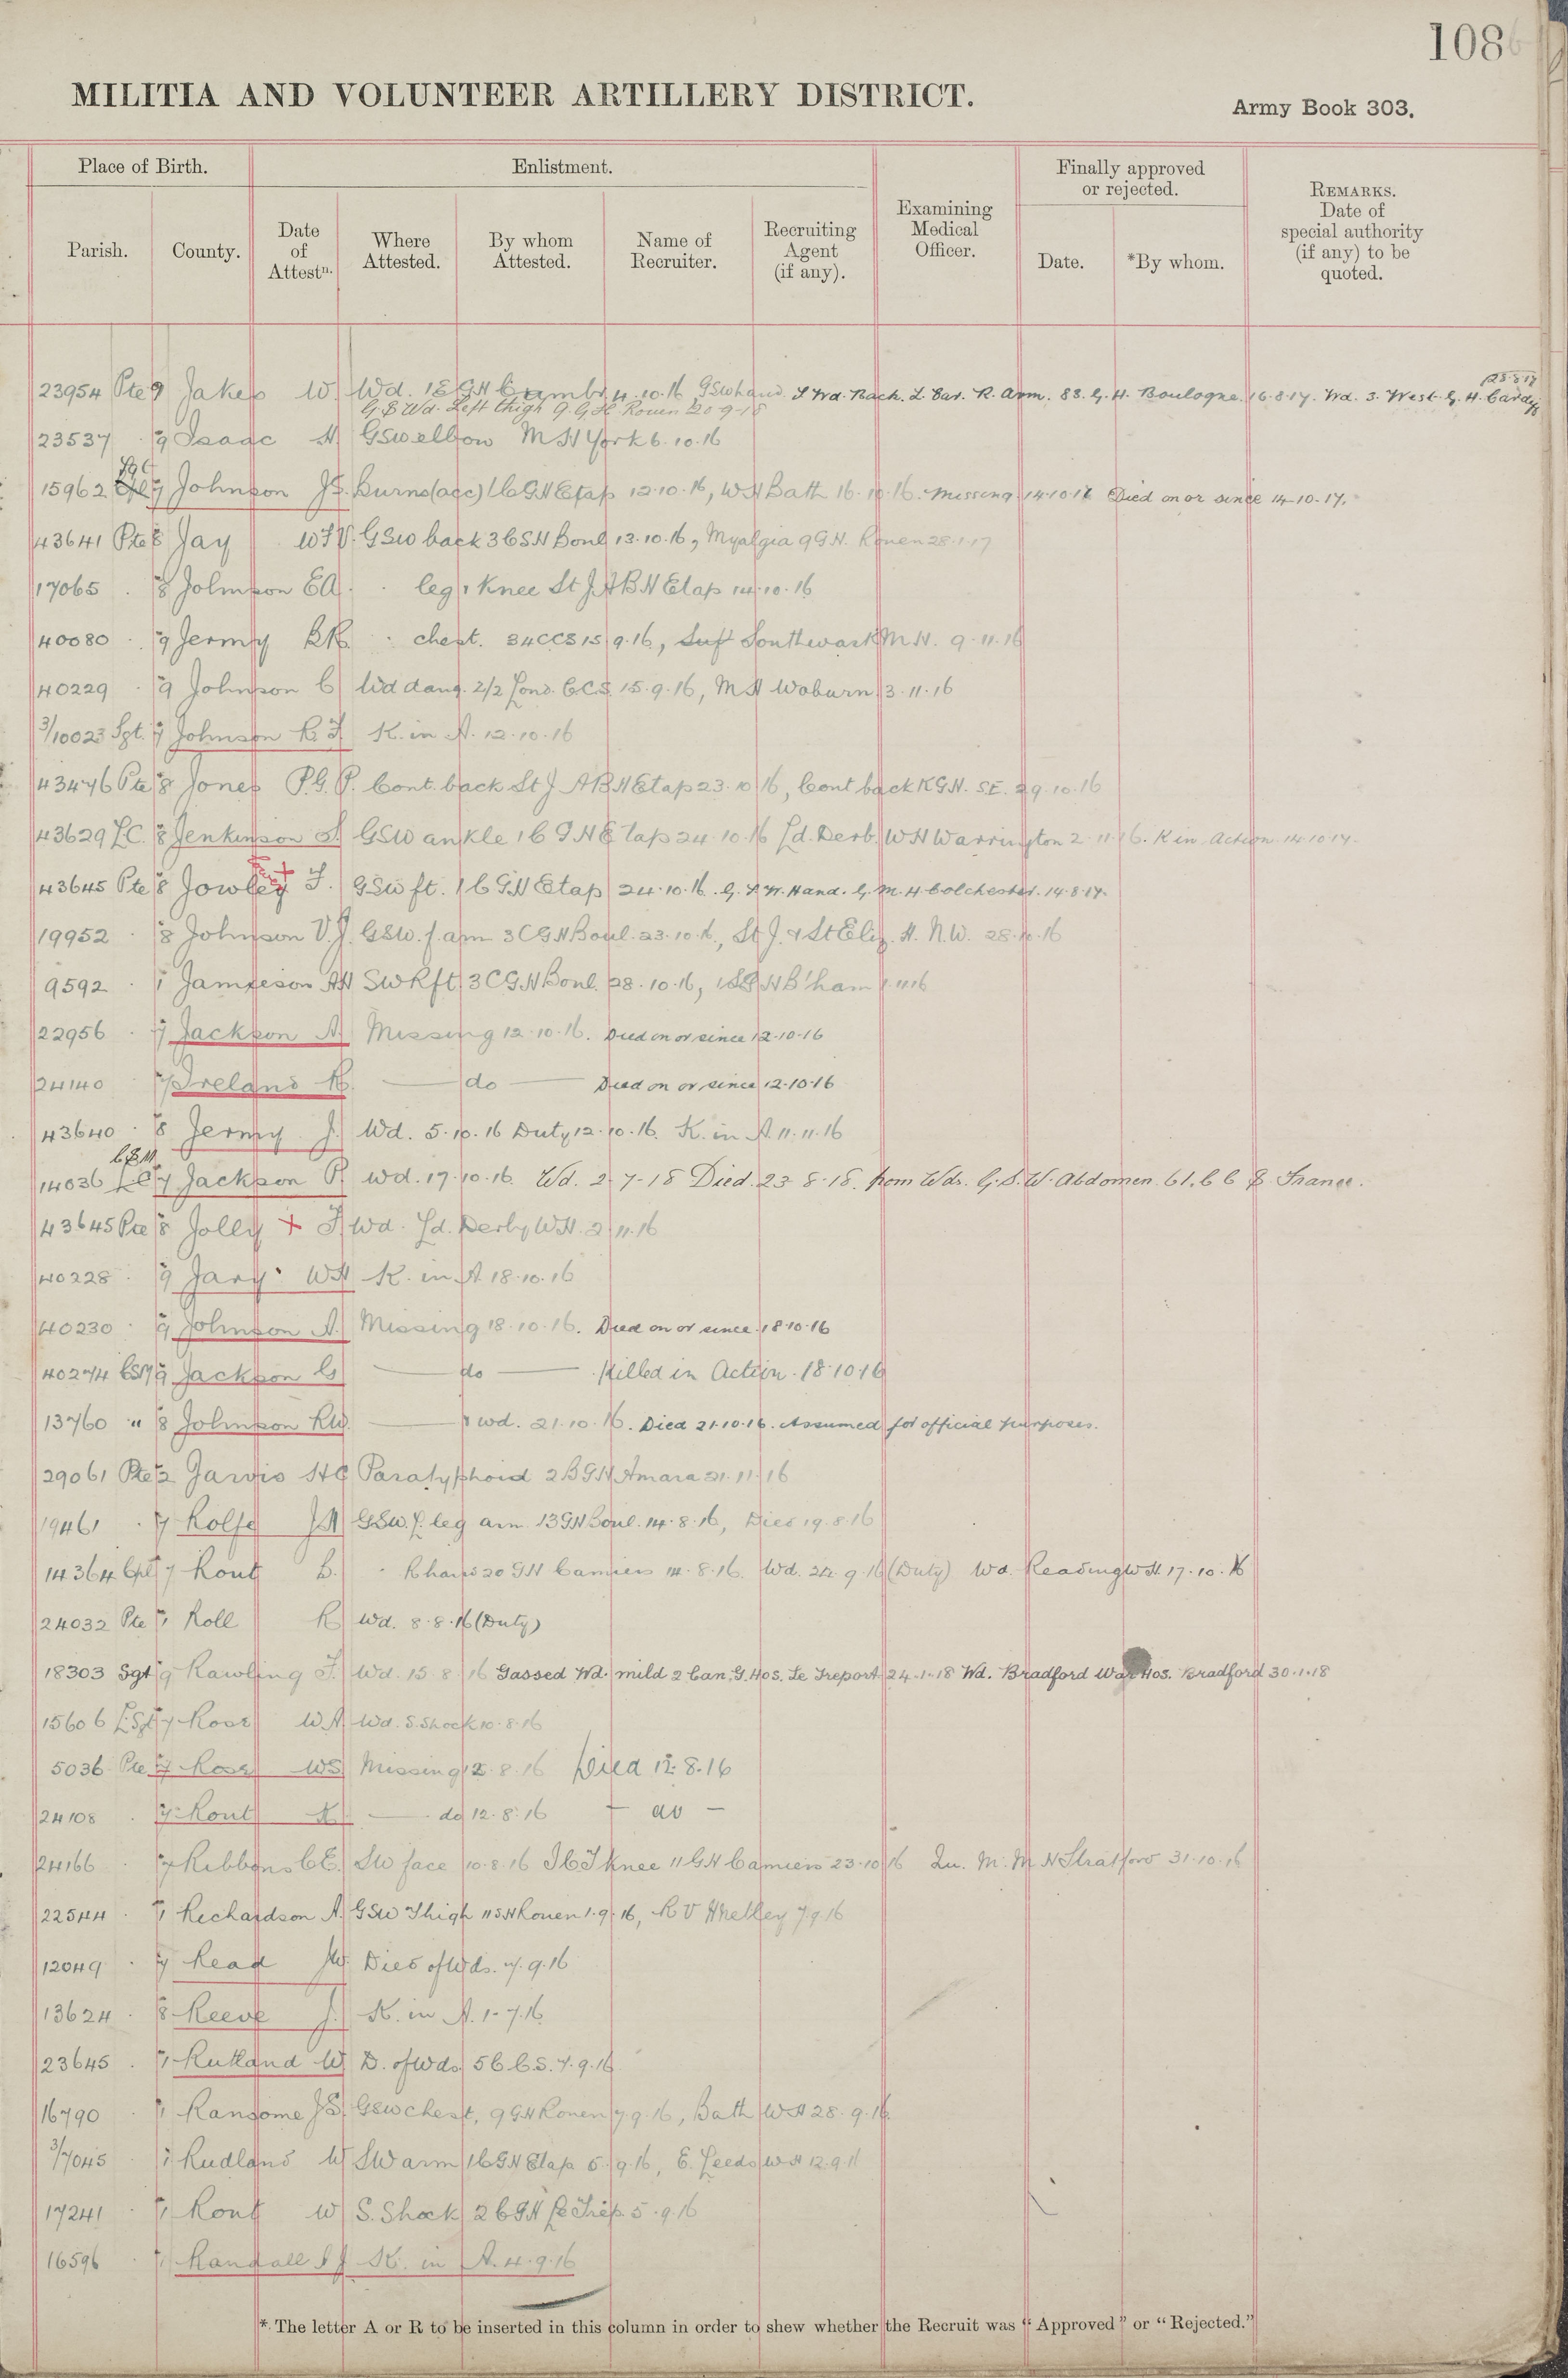 108
MILITIA AND VOLUNTEER ARTILLERY DISTRICT.
Army Book 303.
Place of Birth.
Enlistment.
Finally approved or rejected.
Parish.
County.
Date of Attestn.
Where Attested.
By whom Attested.
Name of Recruiter.
Recruiting Agent (if any).
Examining Medical Officer.
Date.
*By whom.
REMARKS. Date of special authority (if any) to be quoted.
25.8.17
23954 Pte 9 Jakes W. Wd. 18 GH 4.10.16 GSW hand. S Wd. Back. L. Ear. R. Arm. 83. G. H. Boulogne. 16.8.17. Wd. 3. West. G. H. Cardiff
G.S. Wd. Left thigh 9.G.H. Rouen 20.9.18
23537 . 9 Isaac H GSW elbow MH York 6.10.16
15962 Sgt 7 Johnson JF. Burns (acc) 16 GH Etap 12.10.16, WH Bath 16.10.16. Missing 14.10.17 Died on or since 14-10-17.
43641 Pte 8 Jay WFV. GSW back 36 SH Boul 13.10.16, Myalgia 9 G.H. Rouen 28.1.17
17065 . 8 Johnson EA. . leg & Knee St J. ABH Etap 14.10.16
40080 . 9 Jermy RR . chest. 34 CCS 15.9.16, Southwark M.H. 9.11.16
40229 . 9 Johnson C Wd dang. 2/2 Lond. C.C.S. 15.9.16, MH Woburn 3.11.16
3/10023 Sgt. 7 Johnson K. in A. 12.10.16
43476 Pte 8 Jones P.G.P. Cont. back St J. ABH Etap 23.10.16, Cont back KGH. SE. 29.10.16
43629 LC. 8 Jenkinson S. GSW ankle 16 GH Etap 24.10.16 Ld. Derb. WH Warrington 2.11.16. K in Action 14.10.17.
43645 Pte 8 Jowley F. GSW ft. 16 GH Etap 24.10.16. G.S.W. Hand. G. M. H Colchester. 14.8.17.
19952 . 8 Johnson V.J. GSW. f. arm 3 CGH Boul. 23.10.16, St J. & St Eliz. H. N.W. 28.10.16
9592 . 7 Jamieson AH SW R ft 3 CGH Boul. 28.10.16, B'ham 1.11.16
22956 . 7 Jackson A. Missing 12.10.16. Died on or since 12-10-16
24140 7 Ireland do Died on or since 12-10-16
43640 . 8 Jermy J. Wd. 5.10.16 Duty 12.10.16. K. in A. 11.11.16
C.S.M.
14036 7 Jackson P. Wd. 17.10.16. Wd. 2-7-18 Died 23-8-18. from Wds. G.S.W. Abdomen. 61. C C S France.
43645 Pte 8 Jolly + F. Wd. Ld. Derby WH. 2.11.16
40228 . 9 Jary WH K. in A 18.10.16
40230 . 9 Johnson A. Missing 18.10.16. Died on or since. 18-10-16
40274 CSM 9 Jackson G do Killed in Action. 18.10.16
13760 " 8 Johnson RW. & wd. 21.10.16. Died 21.10.16. Assumed for official purposes.
29061 Pte 2 Jarvis HC Paratyphoid 2 BGH Amara 21.11.16
19461 . 7 Rolfe JA GSW. f. leg arm 13 GH Boul. 14.8.16, Died 19.8.16
14364 Cpl 7 Rout B. . 20 GH Camiers 14.8.16. Wd. 24.9.16 (Duty) Wd. Reading WH. 17.10.16
24032 Pte 7 Roll R Wd. 8.8.16 (Duty)
18303 Sgt 9 Rawling F. Wd. 15.8.16 Gassed Wd. mild 2 Can. G. Hos. Le Treport 24-1-18 Wd. Bradford War Hos. Bradford 30.1.18
15606 L Sgt 7 Rose WA Wd. S. Shock 10.8.16
5036 Pte 7 Rose WS Missing 12.8.16 Died 12.8.16
24108 . 7 Rout do 12.8.16 - do -
24166 . 7 Ribbons CE. SW face 10.8.16 ICT knee 11 GH Camiers 23.10.16 Qu. M. M H Stratford 31.10.16
22544 . 7 Richardson A. GSW Thigh 11 SH Rouen 1.9.16, R V H Netley 7.9.16
12049 . 7 Read JW. Died of Wds. 7.9.16
13624 . 8 Reeve J. K. in A. 1.7.16
23645 . 7 Rutland W D. of Wds 5 C.C.S. 7.9.16
16790 . 7 Ransome JS. GSW chest, 9 GH Rouen 7.9.16, Bath WH 28.9.16
3/7045 . 7 Rudland W SW arm 16 GH Etap 5.9.16, E. Leeds WH 12.9.16
17241 . 7 Rout W S. Shock 2 CGH Le Trep. 5.9.16
16596 . 7 Randall K. in A. 4.9.16
*. The letter A or R to be inserted in this column in order to shew whether the Recruit was "Approved" or "Rejected."